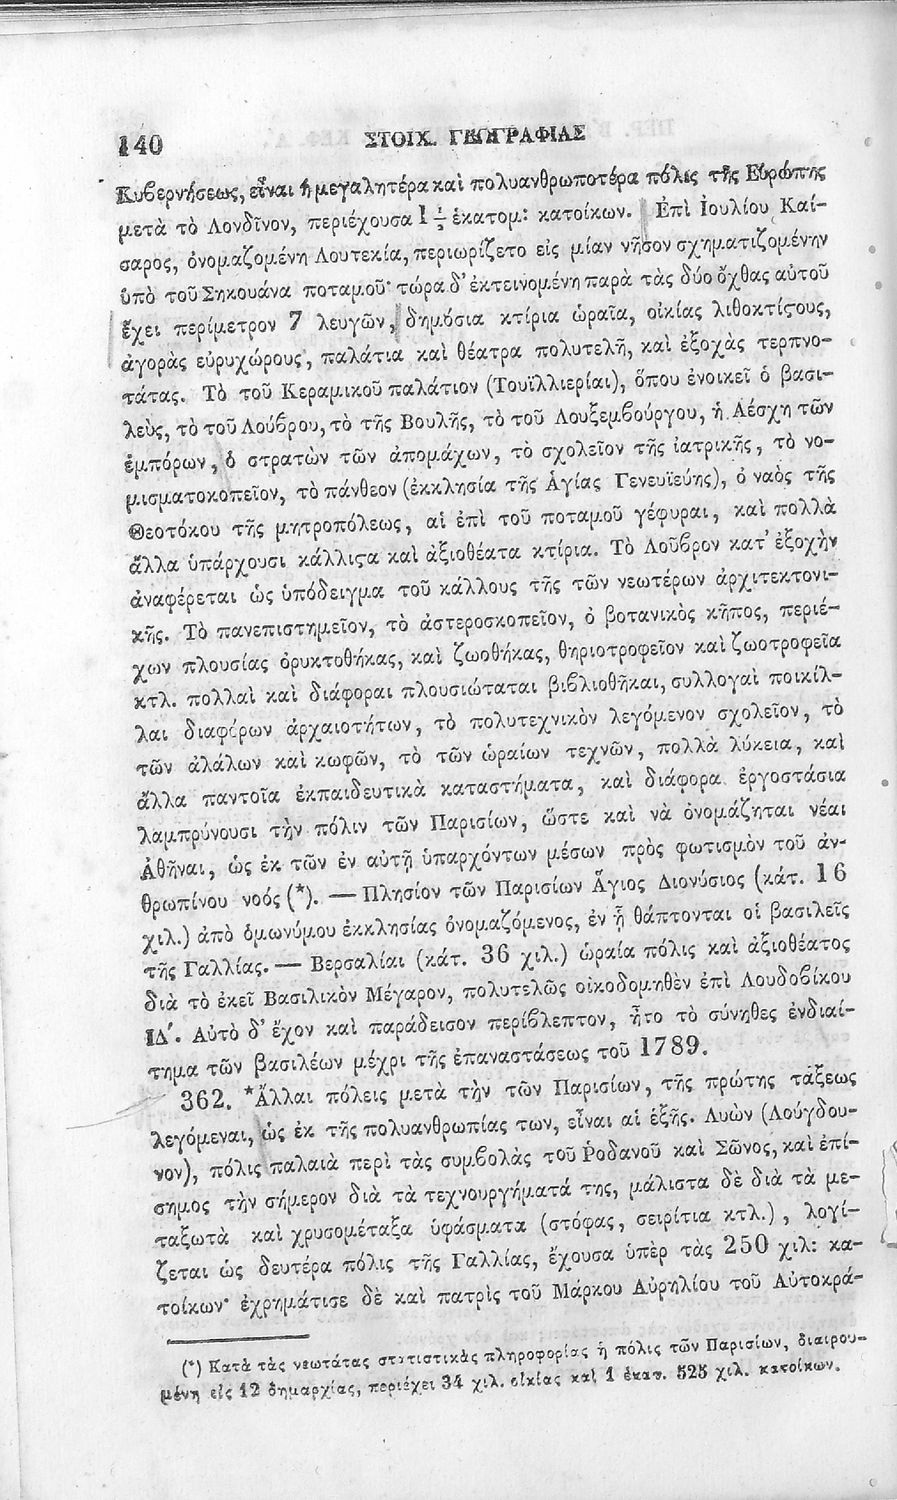 140
ΣΤΟΙΧ. ΓΕΩΓΡΑΦΙΑΣ
Κυβερνήσεως, εἶναι ἡ μεγαλητέρα καὶ πολυανθρωποτέρα πόλις τῆς Εὐρώπης
μετὰ τὸ Λονδῖνον, περιέχουσα 1 ½ ἑκατομ: κατοίκων. Ἐπὶ Ἰουλίου Καί-
σαρος, ὀνομαζομένη Λουτεκία, περιωρίζετο εἰς μίαν νῆσον σχηματιζομένην
ὑπὸ τοῦ Σηκουάνα ποταμοῦ· τώρα δ' ἐκτεινομένη παρὰ τὰς δύο ὄχθας αὐτοῦ
ἔχει περίμετρον 7 λευγῶν, δημόσια κτίρια ὡραῖα, οἰκίας λιθοκτίϛους,
ἀγορὰς εὐρυχώρους, παλάτια καὶ θέατρα πολυτελῆ, καὶ ἐξοχὰς τερπνο-
τάτας. Τὸ τοῦ Κεραμικοῦ παλάτιον (Τουϊλλιερίαι), ὅπου ἐνοικεῖ ὁ βασι-
λεὺς, τὸ τοῦ Λούβρου, τὸ τῆς Βουλῆς, τὸ τοῦ Λουξεμβούργου, ἡ Λέσχη τῶν
ἐμπόρων, ὁ στρατὼν τῶν ἀπομάχων, τὸ σχολεῖον τῆς ἰατρικῆς, τὸ νο-
μισματοκοπεῖον, τὸ πάνθεον (ἐκκλησία τῆς Ἁγίας Γενευϊεύης), ὁ ναὸς τῆς
Θεοτόκου τῆς μητροπόλεως, αἱ ἐπὶ τοῦ ποταμοῦ γέφυραι, καὶ πολλὰ
ἄλλα ὑπάρχουσι κάλλιϛα καὶ ἀξιοθέατα κτίρια. Τὸ Λοῦβρον κατ' ἐξοχὴν
ἀναφέρεται ὡς ὑπόδειγμα τοῦ κάλλους τῆς τῶν νεωτέρων ἀρχιτεκτονι-
κῆς. Τὸ πανεπιστημεῖον, τὸ ἀστεροσκοπεῖον, ὁ βοτανικὸς κῆπος, περιέ-
χων πλουσίας ὀρυκτοθήκας, καὶ ζωοθήκας, θηριοτροφεῖον καὶ ζωοτροφεῖα
κτλ. πολλαὶ καὶ διάφοραι πλουσιώταται βιβλιοθῆκαι, συλλογαὶ ποικίλ-
λαι διαφόρων ἀρχαιοτήτων, τὸ πολυτεχνικὸν λεγόμενον σχολεῖον, τὸ
τῶν ἀλάλων καὶ κωφῶν, τὸ τῶν ὡραίων τεχνῶν, πολλὰ λύκεια, καὶ
ἄλλα παντοῖα ἐκπαιδευτικὰ καταστήματα, καὶ διάφορα ἐργοστάσια
λαμπρύνουσι τὴν πόλιν τῶν Παρισίων, ὥστε καὶ νὰ ὀνομάζηται νέαι
Ἀθῆναι, ὡς ἐκ τῶν ἐν αὐτῇ ὑπαρχόντων μέσων πρὸς φωτισμὸν τοῦ ἀν-
θρωπίνου νοός (*). — Πλησίον τῶν Παρισίων Ἅγιος Διονύσιος (κάτ. 16
χιλ.) ἀπὸ ὁμωνύμου ἐκκλησίας ὀνομαζόμενος, ἐν ᾗ θάπτονται οἱ βασιλεῖς
τῆς Γαλλίας. — Βερσαλίαι (κάτ. 36 χιλ.) ὡραία πόλις καὶ ἀξιοθέατος
διὰ τὸ ἐκεῖ Βασιλικὸν Μέγαρον, πολυτελῶς οἰκοδομηθὲν ἐπὶ Λουδοβίκου
ΙΔ'. Αὐτὸ δ' ἔχον καὶ παράδεισον περίβλεπτον, ἦτο τὸ σύνηθες ἐνδιαί-
τημα τῶν βασιλέων μέχρι τῆς ἐπαναστάσεως τοῦ 1789.
362. *Ἄλλαι πόλεις μετὰ τὴν τῶν Παρισίων, τῆς πρώτης τάξεως
λεγόμεναι, ὡς ἐκ τῆς πολυανθρωπίας των, εἶναι αἱ ἑξῆς. Λυὼν (Λούγδου-
νον), πόλις παλαιὰ περὶ τὰς συμβολὰς τοῦ Ῥοδανοῦ καὶ Σῶνος, καὶ ἐπί-
σημος τὴν σήμερον διὰ τὰ τεχνουργήματά της, μάλιστα δὲ διὰ τὰ με-
ταξωτὰ καὶ χρυσομέταξα ὑφάσματα (στόφας, σειρίτια κτλ.), λογί-
ζεται ὡς δευτέρα πόλις τῆς Γαλλίας, ἔχουσα ὑπὲρ τὰς 250 χιλ: κα-
τοίκων· ἐχρημάτισε δὲ καὶ πατρὶς τοῦ Μάρκου Αὐρηλίου τοῦ Αὐτοκρά-
(*) Κατὰ τὰς νεωτάτας στατιστικὰς πληροφορίας ἡ πόλις τῶν Παρισίων, διαιρου-
μένη εἰς 12 δημαρχίας, περιέχει 34 χιλ. οἰκίας καὶ 1 ἑκατ. 525 χιλ. κατοίκων.